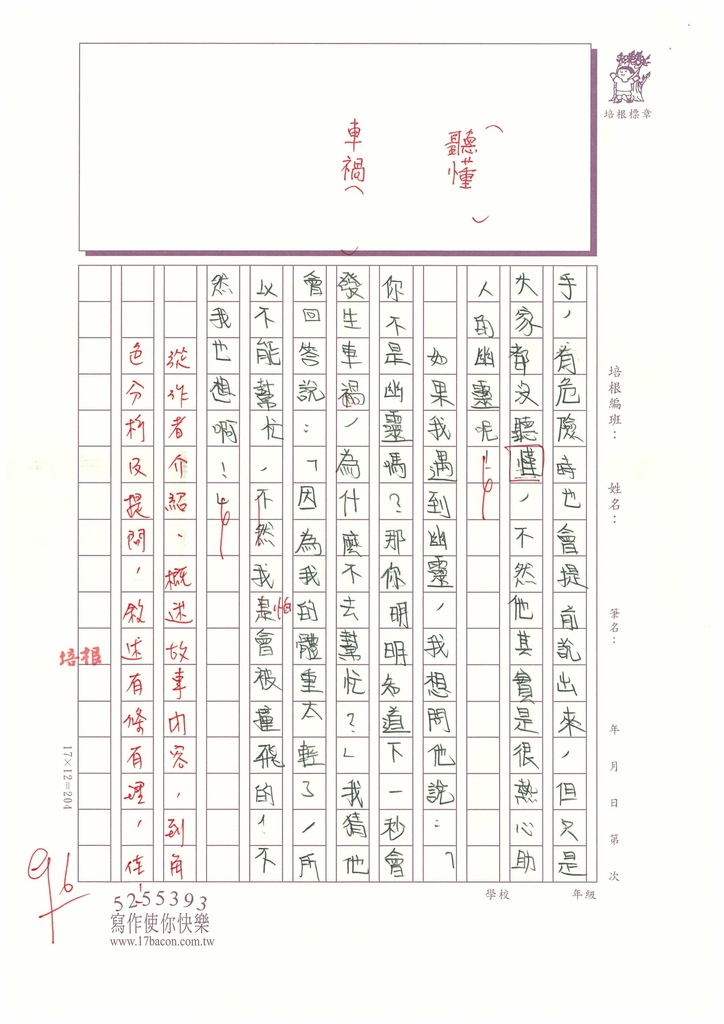 聽懂（　）
車禍（　）
培根標章
手，有危險時也會提前說出來，但只是
大家都沒聽懂，不然他其實是很熱心助
人的幽靈呢！
如果我遇到幽靈，我想問他說：「
你不是幽靈嗎？那你明明知道下一秒會
發生車禍，為什麼不去幫忙？」我猜他
會回答說：「因為我的體重太輕了，所
以不能幫忙，不然我是怕會被撞飛的！不
然我也想啊！
從作者介紹、概述故事內容，到角
色分析及提問，敘述有條有理，佳！
培根
96
培根編班：
姓名：
筆名：
年 月 日 第 次
學校
年級
17×12=204
5255393
寫作使你快樂
www.17bacon.com.tw